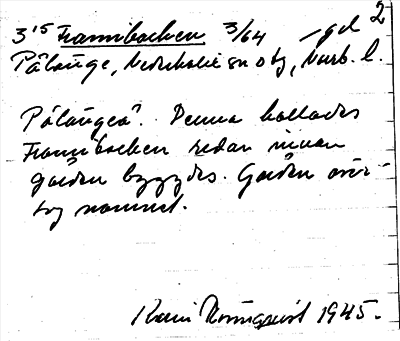 3¹⁵ Frannibacken 3/64 gd 2
Pålänge, Nederkalix sn o hg, Nurb. l.
Pålängeå. Denna kallades
Frannibacken redan innan
gården byggdes. Gården över-
tog namnet.
Karin Rönnqvist 1945.